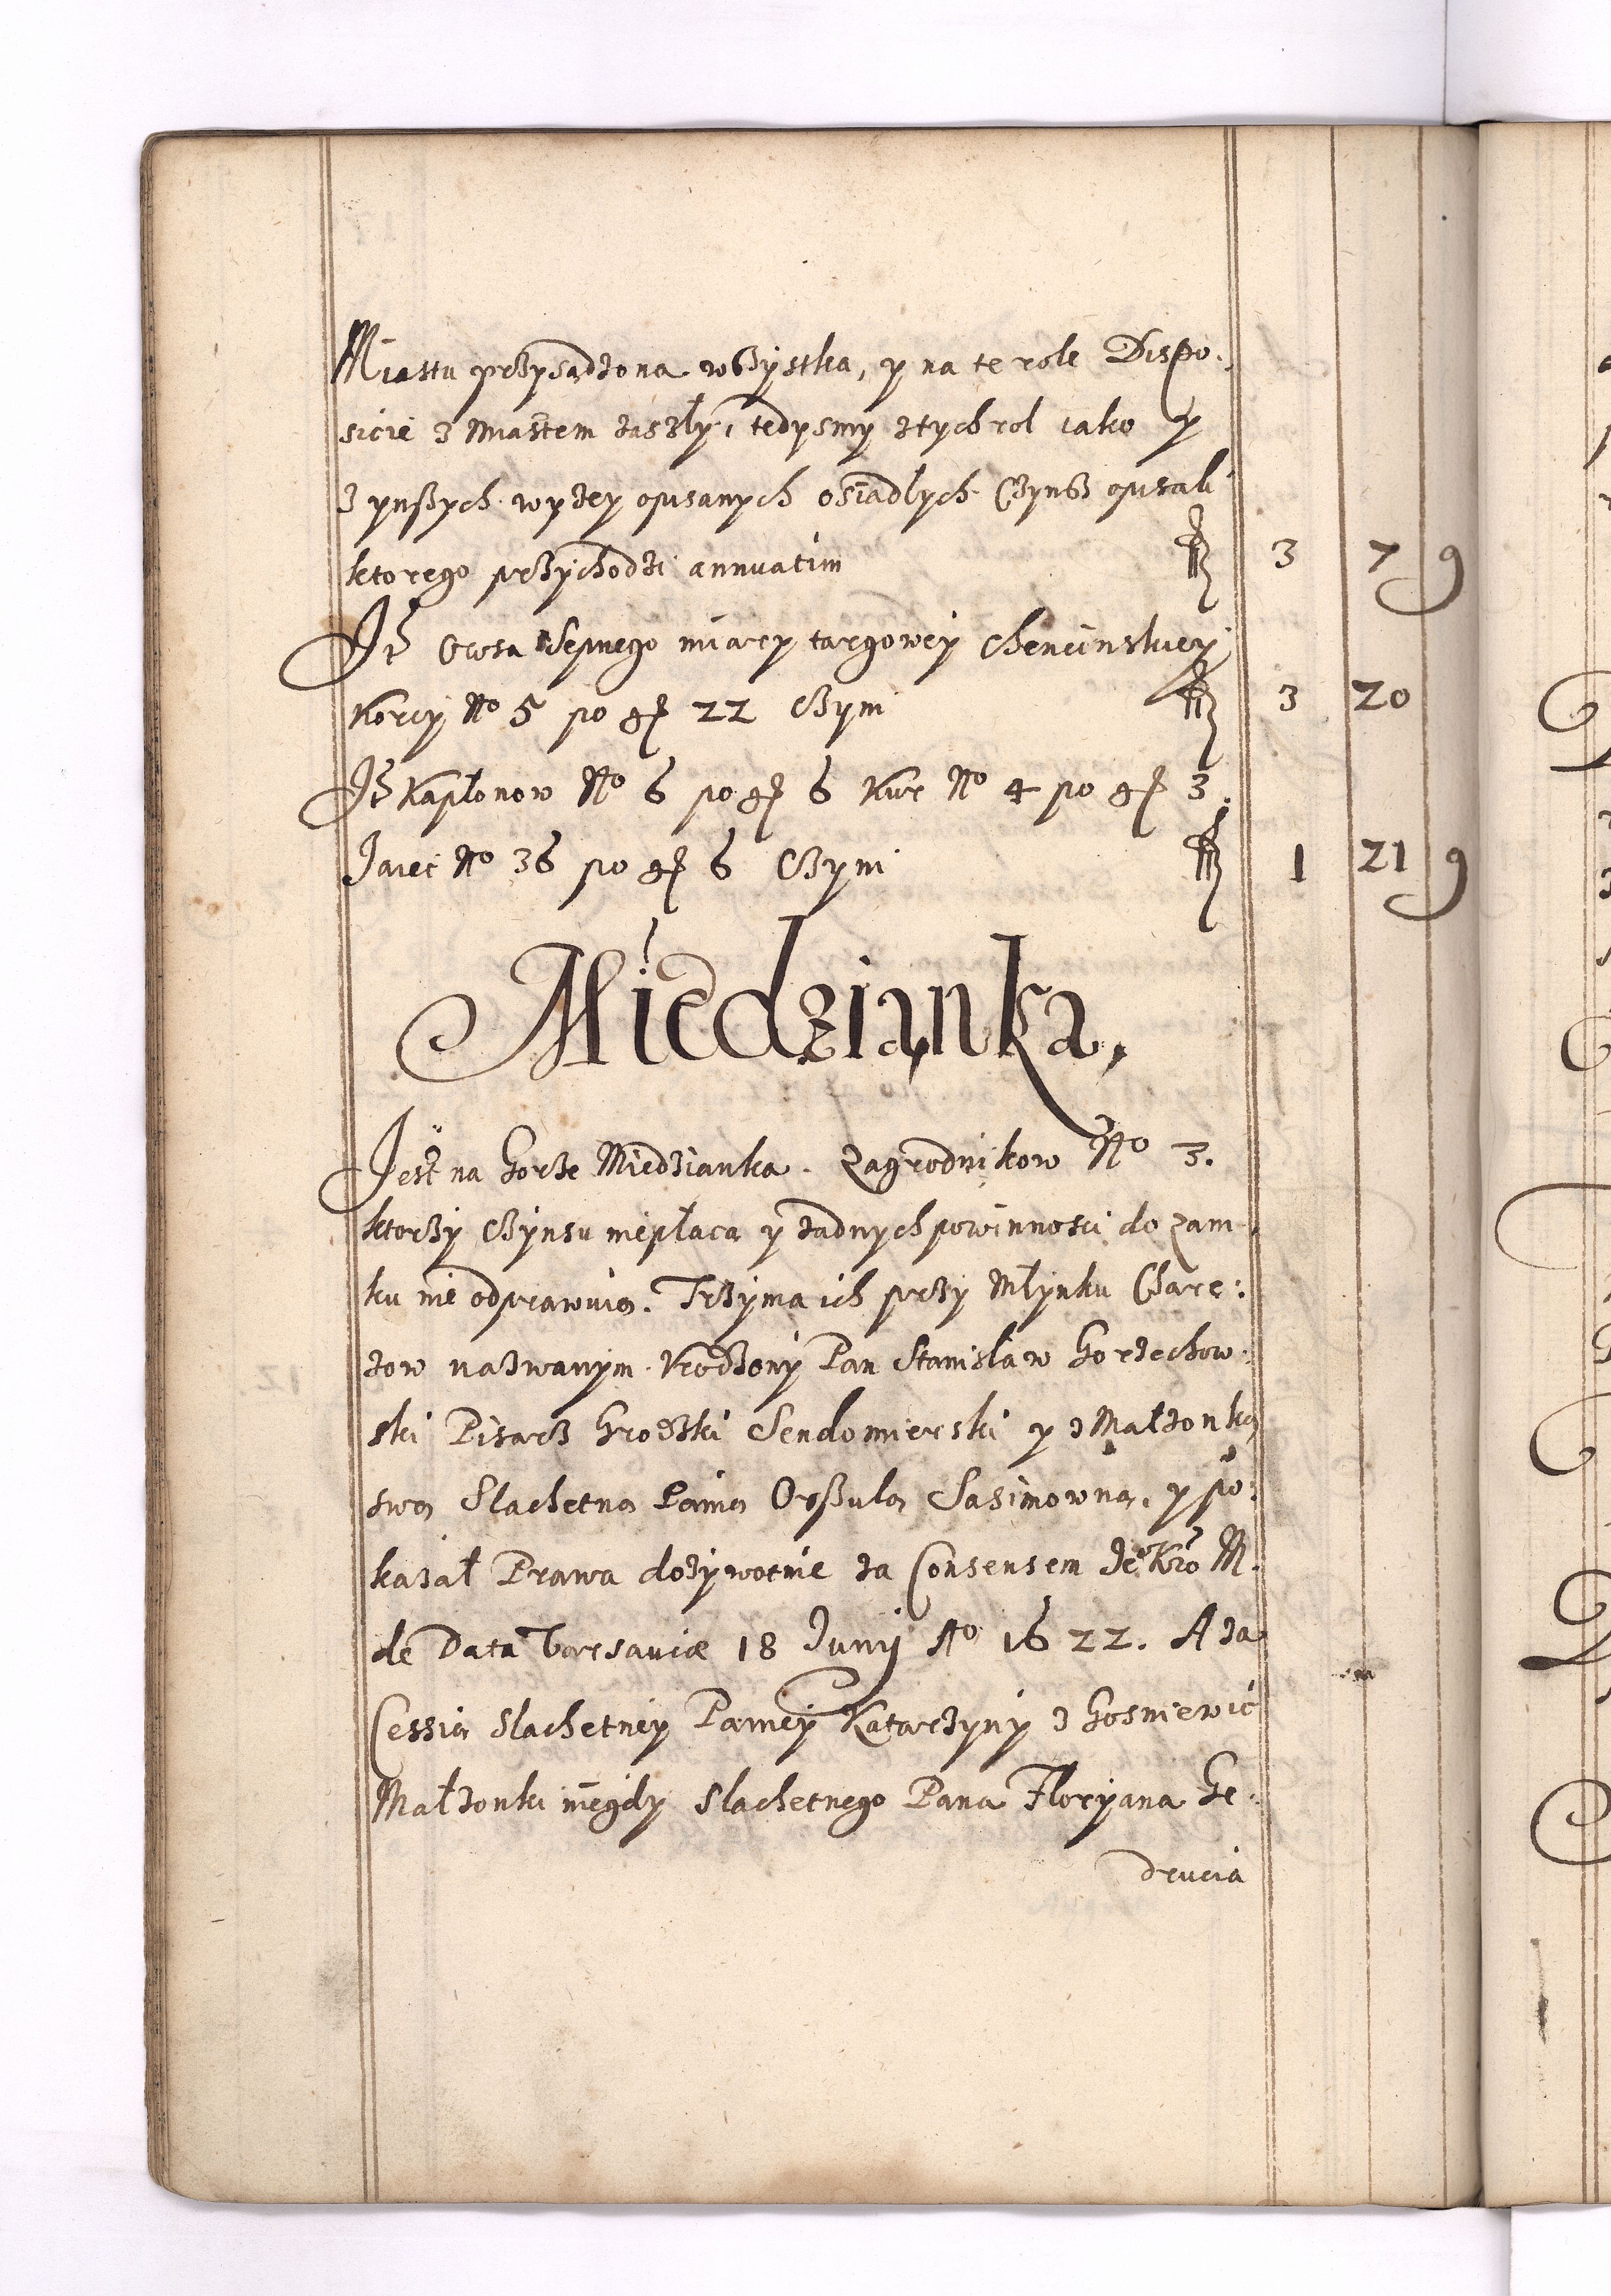 Miastu przysądzona wszystka, y na te role Dispo:
sicie z Miastem zaszły, tedysmy z tych rol iako y
z ynszych wyzey opisanych osiadłych Czynsz opisali
ktorego przychodzi annuatim 3 7 9
It Owsa Sepnego miary targowey Chencinskiey
Korcy No 5 po gł 22 Czyni 3 20
It Kapłonow No 6 po gł 6 Kur No 4 po gł 3.
Jaiec No 36 po gł 6 Czyni 1 21 9
Miedzianka,
Jest na Gorze Miedzianka. Zagrodnikow No 3.
ktorzy Czynsu niepłacą y zadnych powinnosci do zam-
ku nie odprawuią. Trzyma ich przy Młynku Charę:
zow nazwanym. Vrodzony Pan Stanisław Gorzechow:
ski Pisarz Grodzki Sendomierski y z Małzonką
swą Slachetną Panią Orszulą Sasimowną, y po:
kazał Prawa dozywotnie za Consensem Je Kro M.
de Data Varsaviæ 18 Junij Ao 1622. A za
Cessią Slachetney Paniey Katarzyny z Gosniewic
Małzonki niegdy Slachetnego Pana Floryana Ge:
drucia